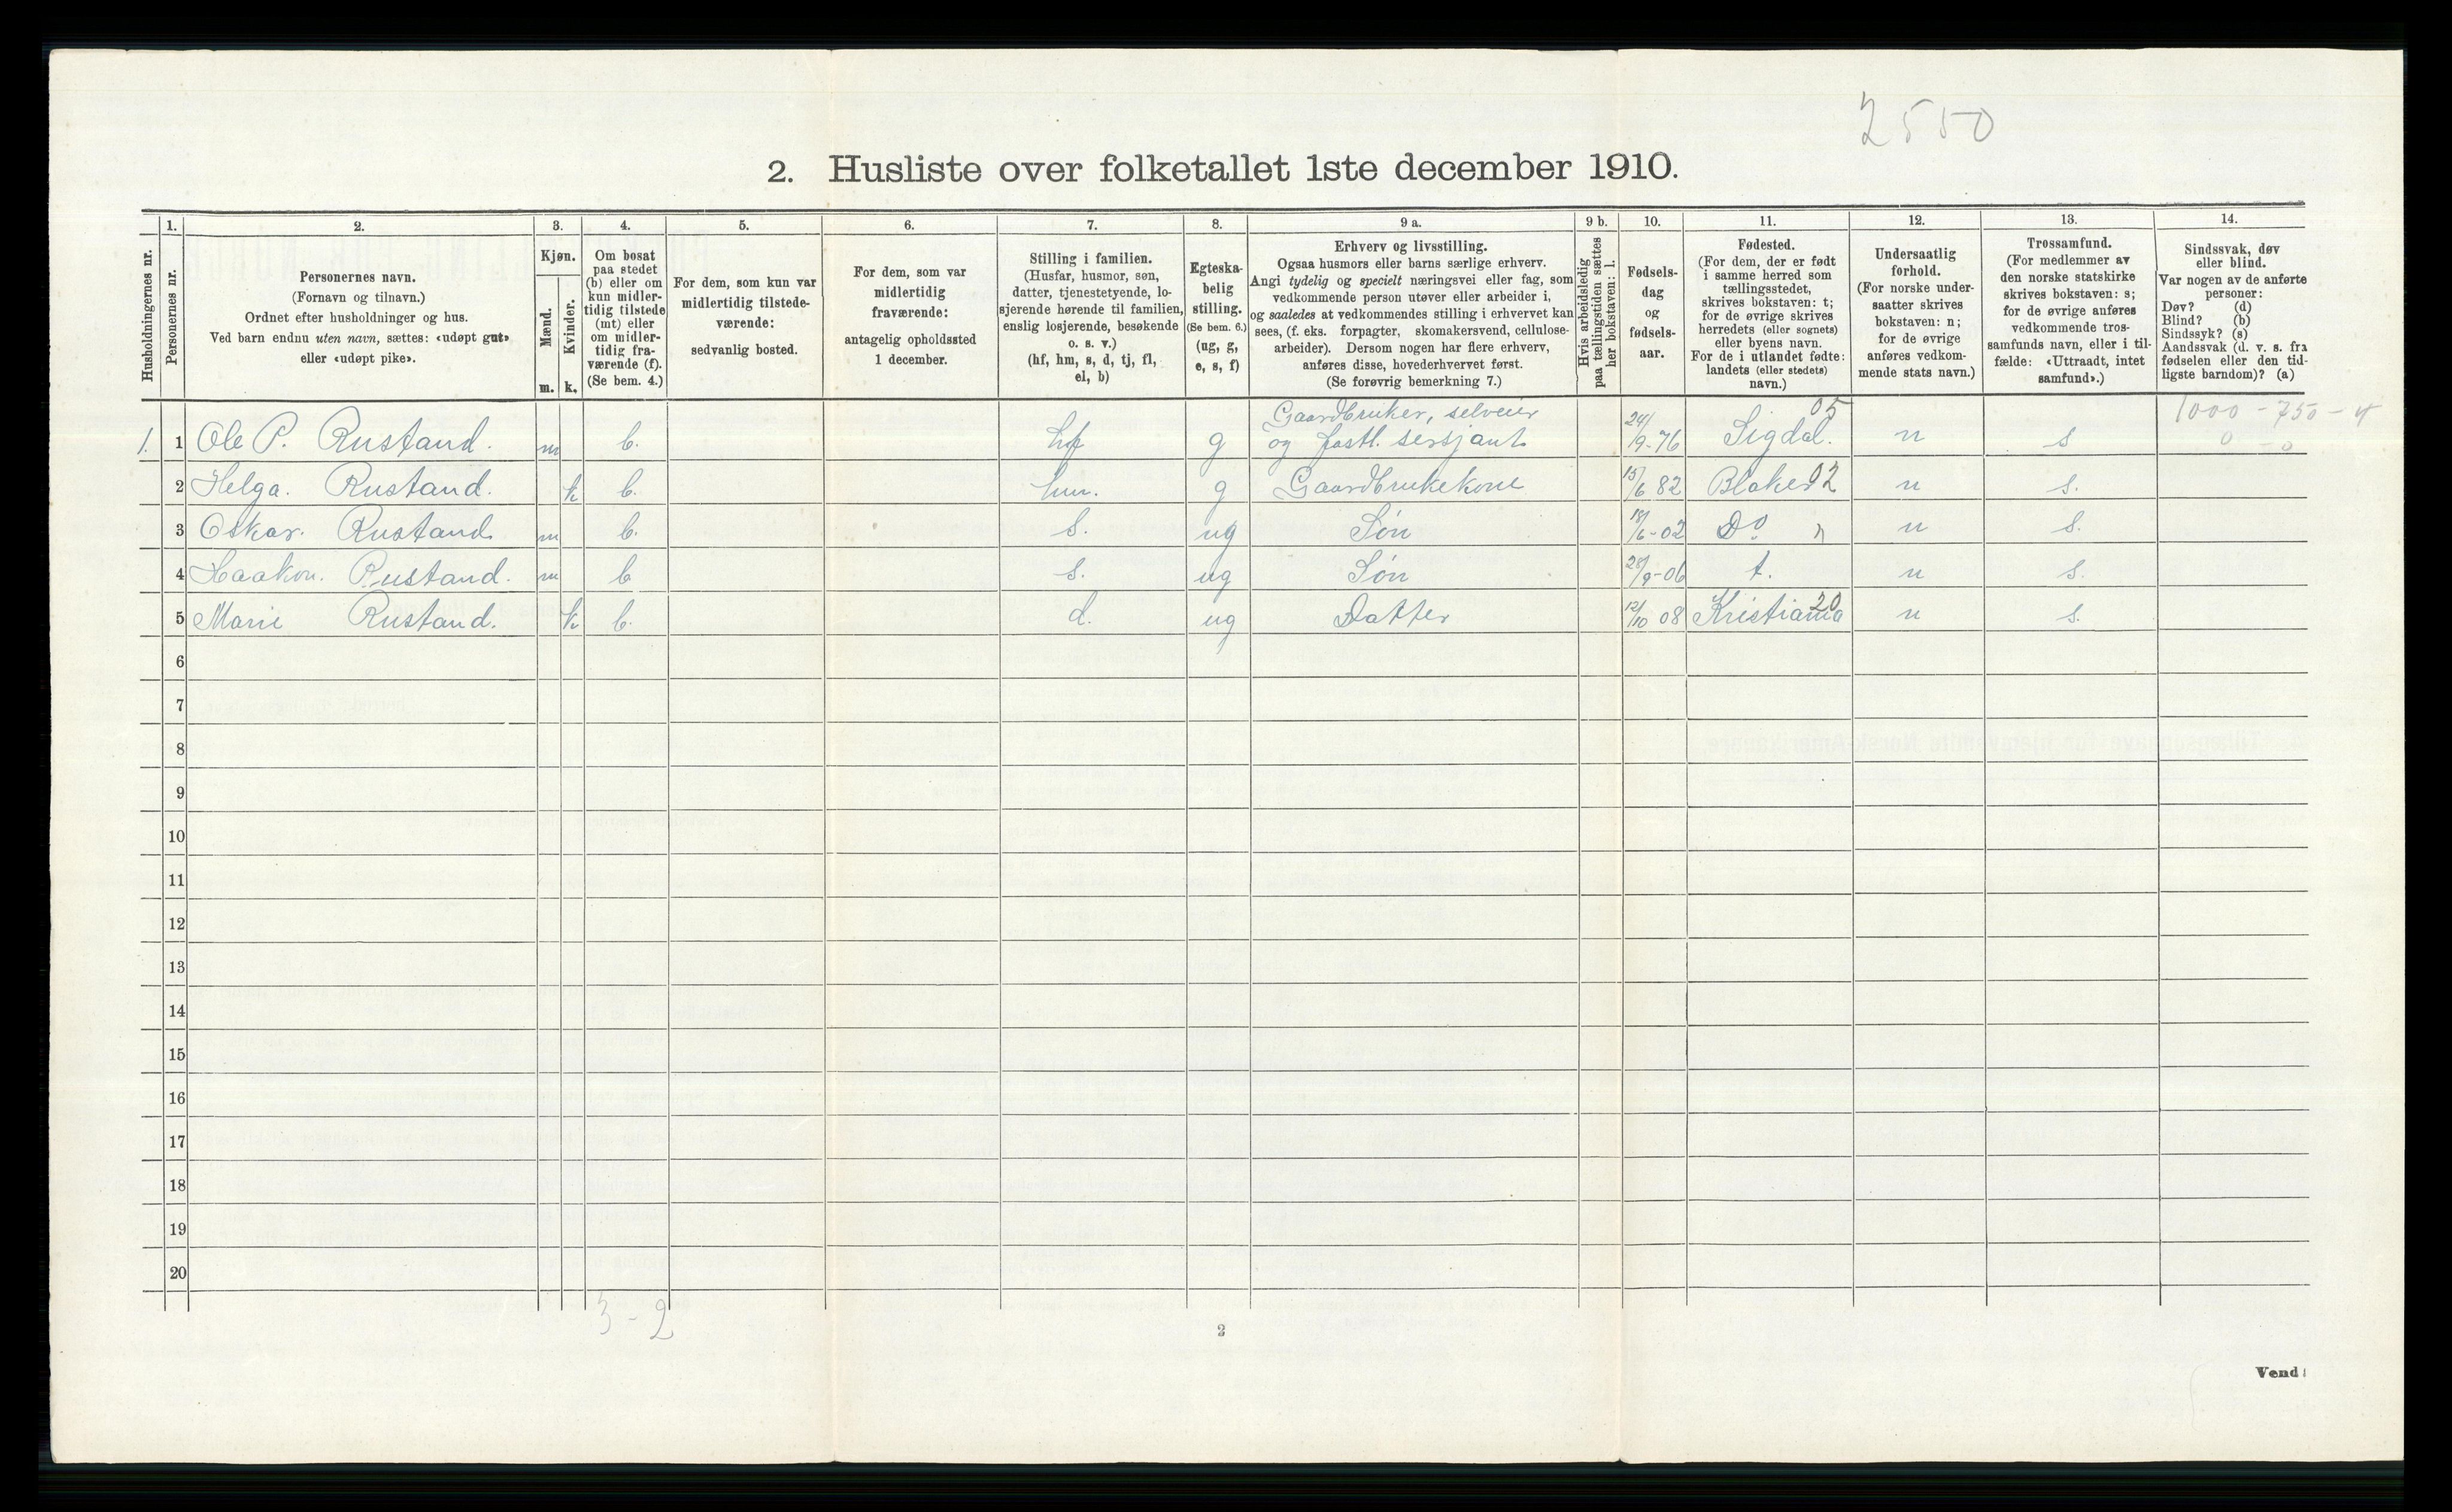 2550
2. Husliste over folketallet 1ste december 1910.
Husholdningernes nr.
1.
Personernes nr.
2.
Personernes navn.
(Fornavn og tilnavn.)
Ordnet efter husholdninger og hus.
Ved barn endnu uten navn, sættes: «udøpt gut»
eller «udøpt pike».
3.
Kjøn.
Mænd.
Kvinder.
m. k.
4.
Om bosat
paa stedet
(b) eller om
kun midler-
tidig tilstede
(mt) eller
om midler-
tidig fra-
værende (f).
(Se bem. 4.)
5.
For dem, som kun var
midlertidig tilstede-
værende:
sedvanlig bosted.
6.
For dem, som var
midlertidig
fraværende:
antagelig opholdssted
1 december.
7.
Stilling i familien.
(Husfar, husmor, søn,
datter, tjenestetyende, lo-
sjerende hørende til familien,
enslig losjerende, besøkende
o. s. v.)
(hf, hm, s, d, tj, fl,
el, b)
8.
Egteska-
belig
stilling.
(Se bem. 6.)
(ug, g,
e, s, f)
9 a.
Erhverv og livsstilling.
Ogsaa husmors eller barns særlige erhverv.
Angi tydelig og specielt næringsvei eller fag, som
vedkommende person utøver eller arbeider i,
og saaledes at vedkommendes stilling i erhvervet kan
sees, (f. eks. forpagter, skomakersvend, cellulose-
arbeider). Dersom nogen har flere erhverv,
anføres disse, hovederhvervet først.
(Se forøvrig bemerkning 7.)
9 b.
Hvis arbeidsledig
paa tællingstiden sættes
her bokstaven: l.
10.
Fødsels-
dag
og
fødsels-
aar.
11.
Fødested.
(For dem, der er født
i samme herred som
tællingsstedet,
skrives bokstaven: t;
for de øvrige skrives
herredets (eller sognets)
eller byens navn.
For de i utlandet fødte:
landets (eller stedets)
navn.)
12.
Undersaatlig
forhold.
(For norske under-
saatter skrives
bokstaven: n;
for de øvrige
anføres vedkom-
mende stats navn.)
13.
Trossamfund.
(For medlemmer av
den norske statskirke
skrives bokstaven: s;
for de øvrige anføres
vedkommende tros-
samfunds navn, eller i til-
fælde: «Uttraadt, intet
samfund».)
14.
Sindssvak, døv
eller blind.
Var nogen av de anførte
personer:
Døv? (d)
Blind? (b)
Sindssyk? (s)
Aandssvak (d. v. s. fra
fødselen eller den tid-
ligste barndom)? (a)
1. 1 Ole P. Rustand. m b. hf g Gaardbruker, selveier og fastl. sersjant 24/9-76 Sigdal. 05 n s 1000-750-4 0 - 0
2 Helga. Rustand. k b. hm. g Gaardbrukekone 15/6 82 Blaker 02 n s.
3 Oskar. Rustand. m b. s. ug Søn 18/6-02 Do " n s.
4 Haakon. Rustand. m b s. ug Søn 28/9-06 t. n s.
5 Marie Rustand. k b. d. ug Datter 12/10 08 Kristiania 20 n s.
6
7
8
9
10
11
12
13
14
15
16
17
18
19
20
3-2
2
Vend!